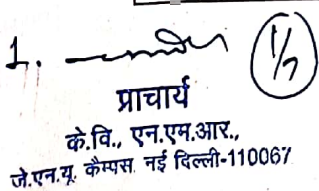 1.
1/7
प्राचार्य
के.वि., एन.एम.आर.,
जे.एन.यू. कैम्पस नई दिल्ली-110067